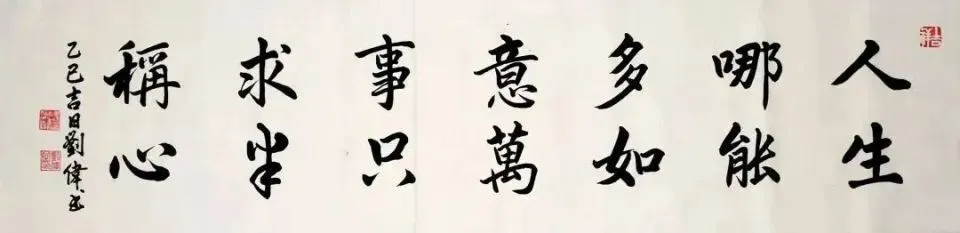 人生
哪能
多如
意萬
事只
求半
稱心
乙巳吉日劉偉书